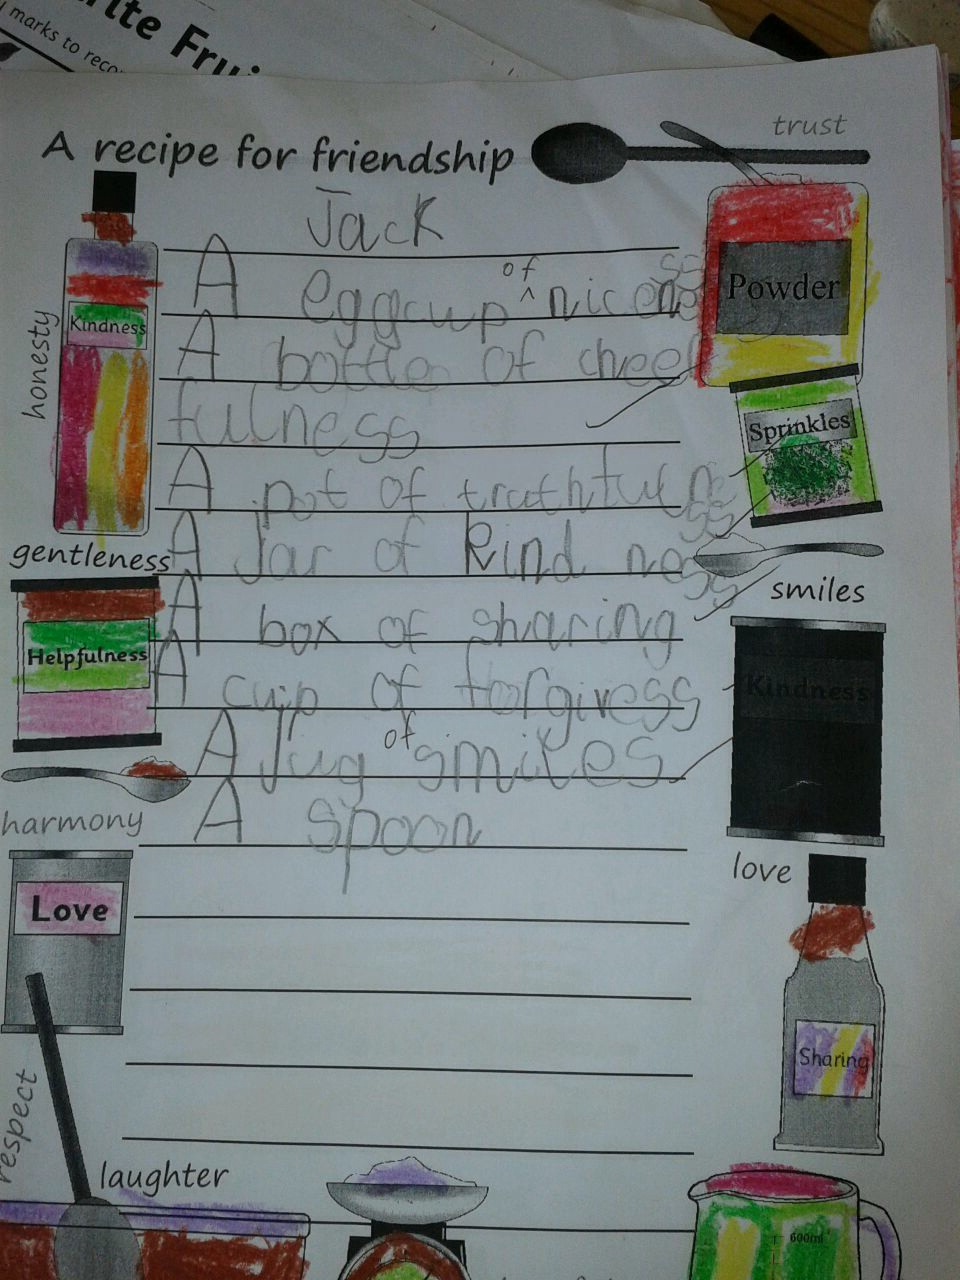 ite Frui
marks to reco
A recipe for friendship
trust
Jack
A eggcup of niceness
Powder
honesty
Kindness
A bottle of cheer
fulness
Sprinkles
A pot of truthfulness
gentleness
A Jar of kind ness
smiles
A box of sharing
Helpfulness
A cup of forgivess
Kindness
A Jug of smiles
harmony
A spoon
love
Love
Sharing
respect
laughter
600ml